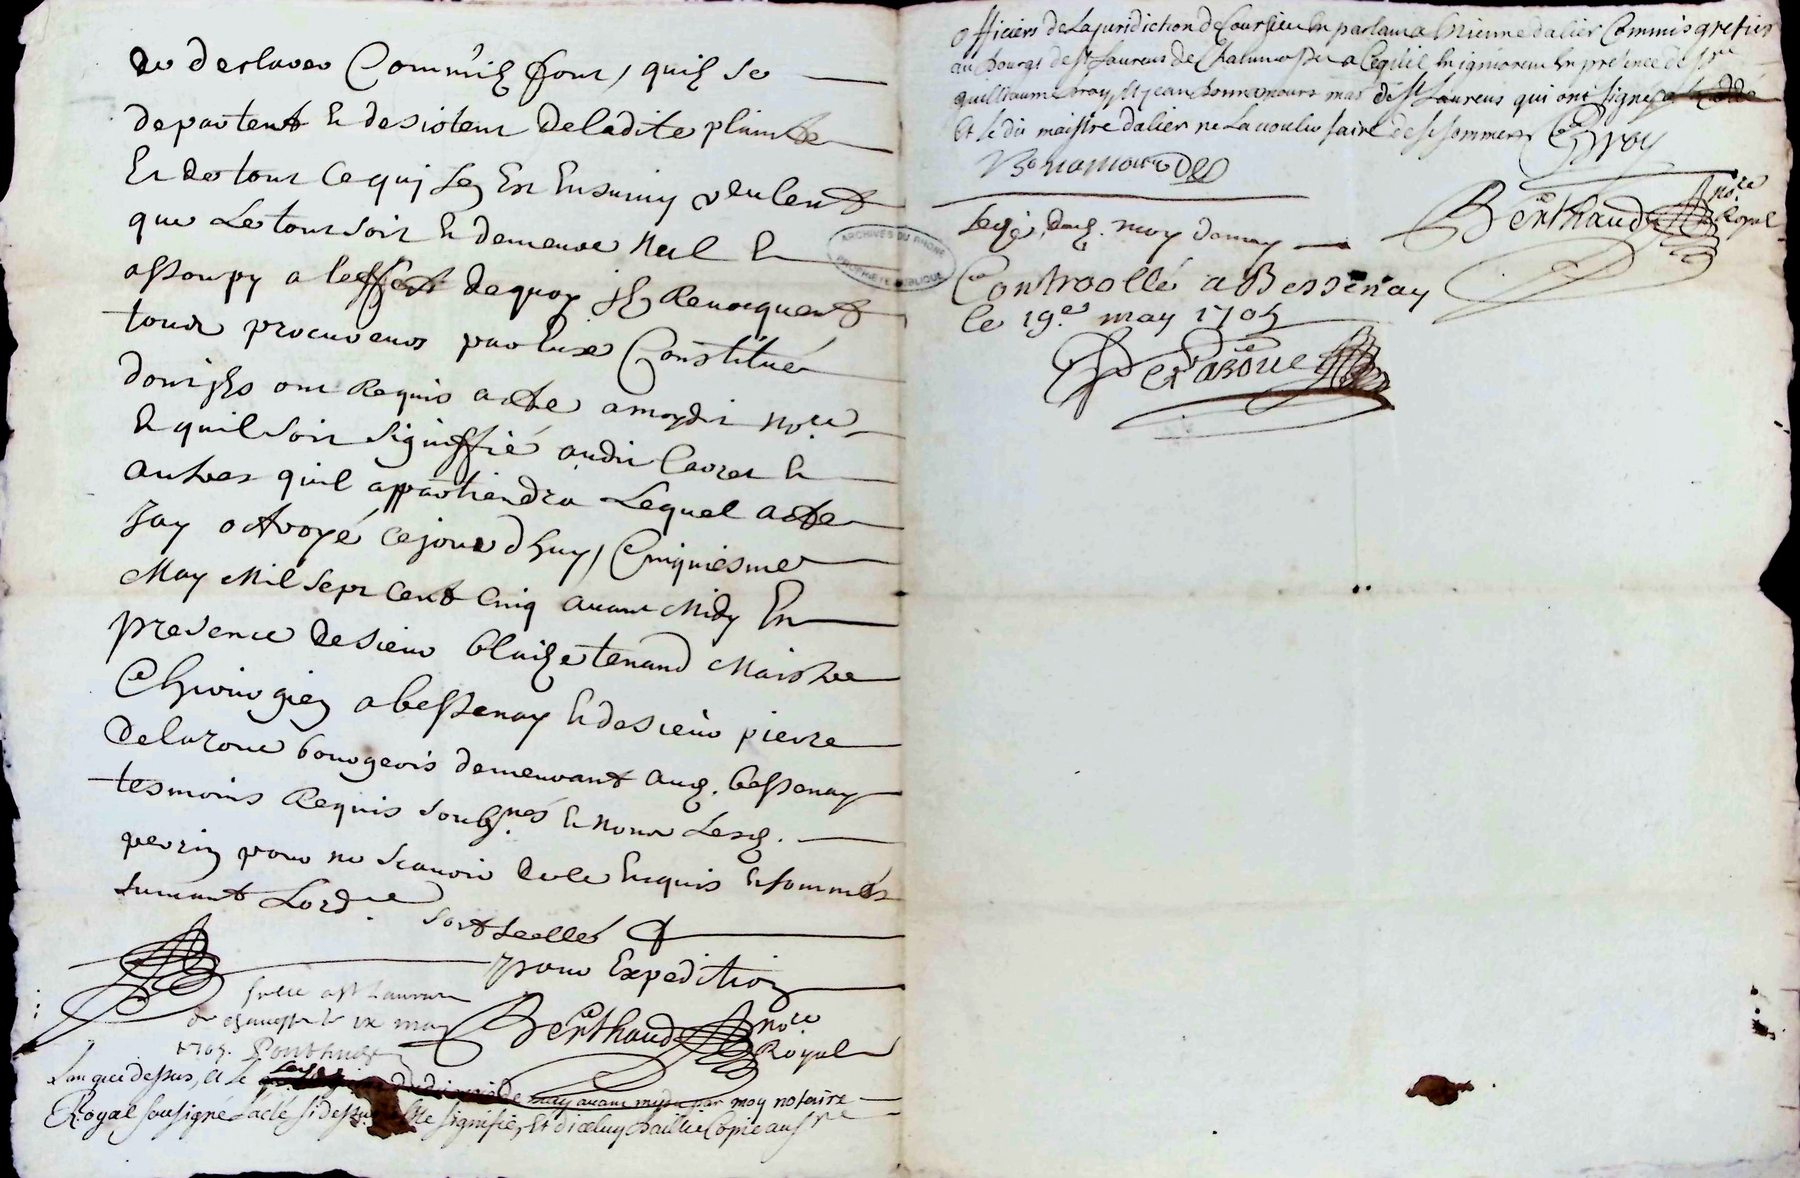 de declarer Comm'ilz font, quilz se
departent & desistent deladite plainte
Et de tout ce quj sen Est Ensuiuy veulent
que Le tout soit & demeure Nul &
assoupy a leffect dequoy jlz Reuocquent
tous procureurs par luxe Constitué
dont jlz ont Requis acte a moydit no.re
& quil soit signiffié audit &
autres quil appartiendra Lequel acte
Jay octroyé cejourd'huy, Cinquiesme
May Mil sept cent Cinq auant Midy En
presence de sieur blaize tenand Maistre
Chirurgien a bessenay & de sieur pierre
Delaroue bourgeois demeurant aud. bessenay
tesmoins Requis soubs.nés & non Lesd.
perrin pour ne scauoir de ce Enquis & sommés
suiuant Lord.ce soit scellé
pour Expedition
Berthaud no.re Royal
scellé a st Laurent
de chamousset le ix may
1705.
Lan que dessus, et le de may auant midy par moy notaire
Royal sousigné Lacte si dessus esté signifié, Et diceluy baillé Copie aus.rs
officiers de La juridiction de Coursieu En parlant a Estienne dalier Commis grefier
au bourg de st Laurens de Chamousset a Ce quil nen ignorent En présence de s.re
guilliaume broy, Et jean bonnamour mar de st Laurens qui ont signe
Et le dit maistre dalier ne La voulu faire de ce sommer Broy
Bonamour
Berthaud no.re Royal
scellé, aud. moy de may
Controollé a Bessenay
le 19.e may 1705
DeLaroue
ARCHIVES DU RHONE
PROPRIÉTÉ PUBLIQUE